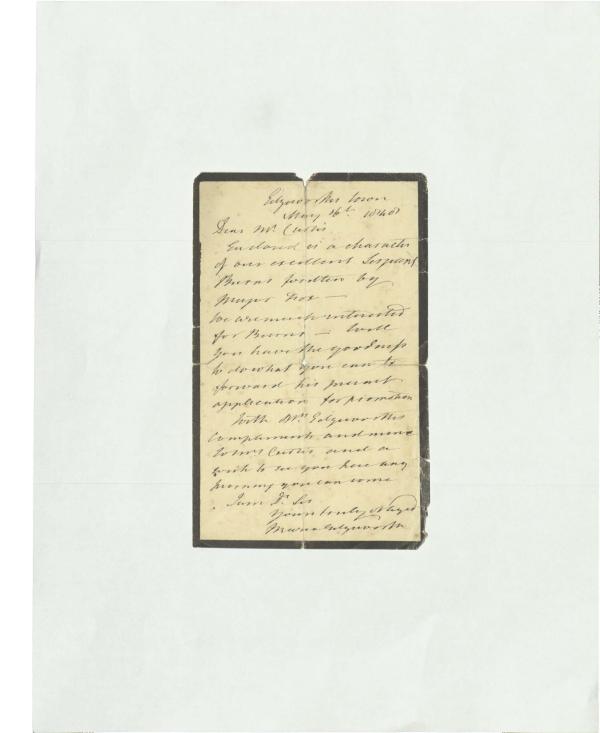 Edgeworths town
May 16th 184
Dear Mr Curtis
Enclosed is a character
of our excellent Serjeant
Burns written by
Major Fox —
We are much interested
for Burns — Will
you have the goodness
to do what you can to
forward his
application for promotion
With Mrs Edgeworths
compliments and mine
to Mrs Curtis and a
wish to see you here any
morning you can come
I am Dr Sir
Yours truly
Maria Edgeworth